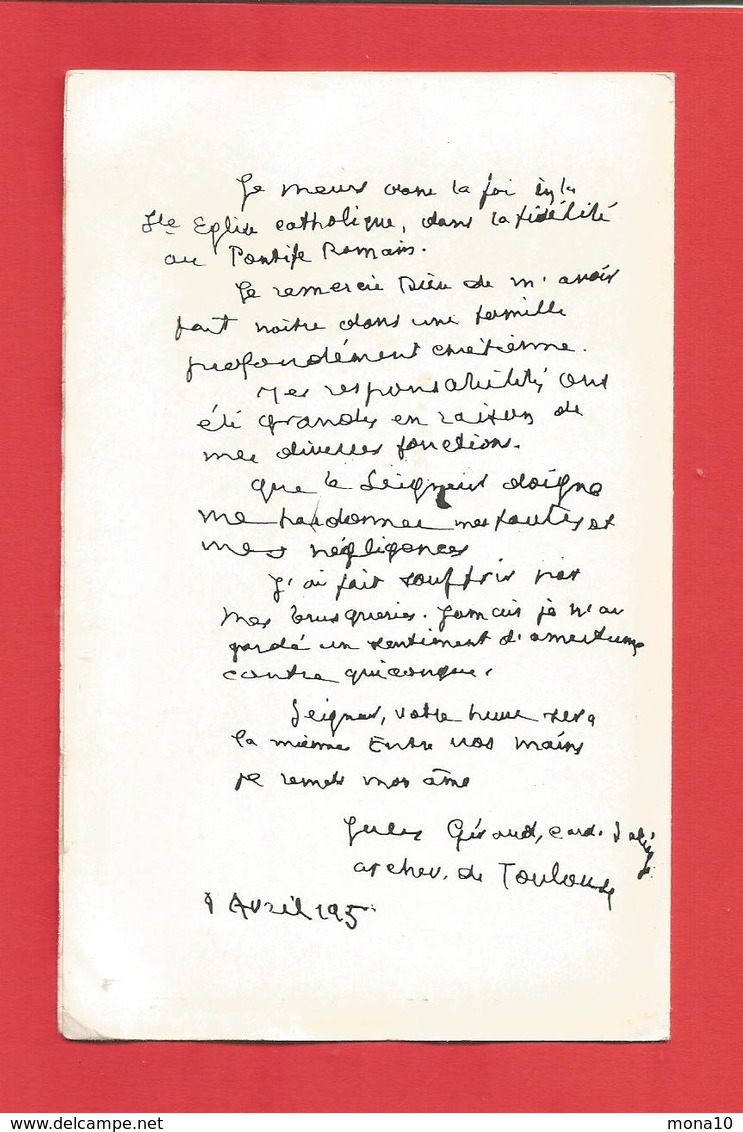 Je meurs dans la foi en la
Ste Eglise catholique, dans la fidélité
au Pontife Romain.
Je remercie Dieu de m'avoir
fait naître dans une famille
profondément chrétienne.
Mes responsabilités ont
été grandes en raison de
mes diverses fonctions.
Que le Seigneur daigne
me pardonner mes fautes et
mes négligences
J'ai fait souffrir par
mes brusqueries. Jamais je n'ai
gardé un sentiment d'amertume
contre quiconque.
Seigneur, votre heure sera
la mienne Entre vos mains
je remets mon âme
Jules Géraud, card. Saliège
archev. de Toulouse
Avril 195
mona10